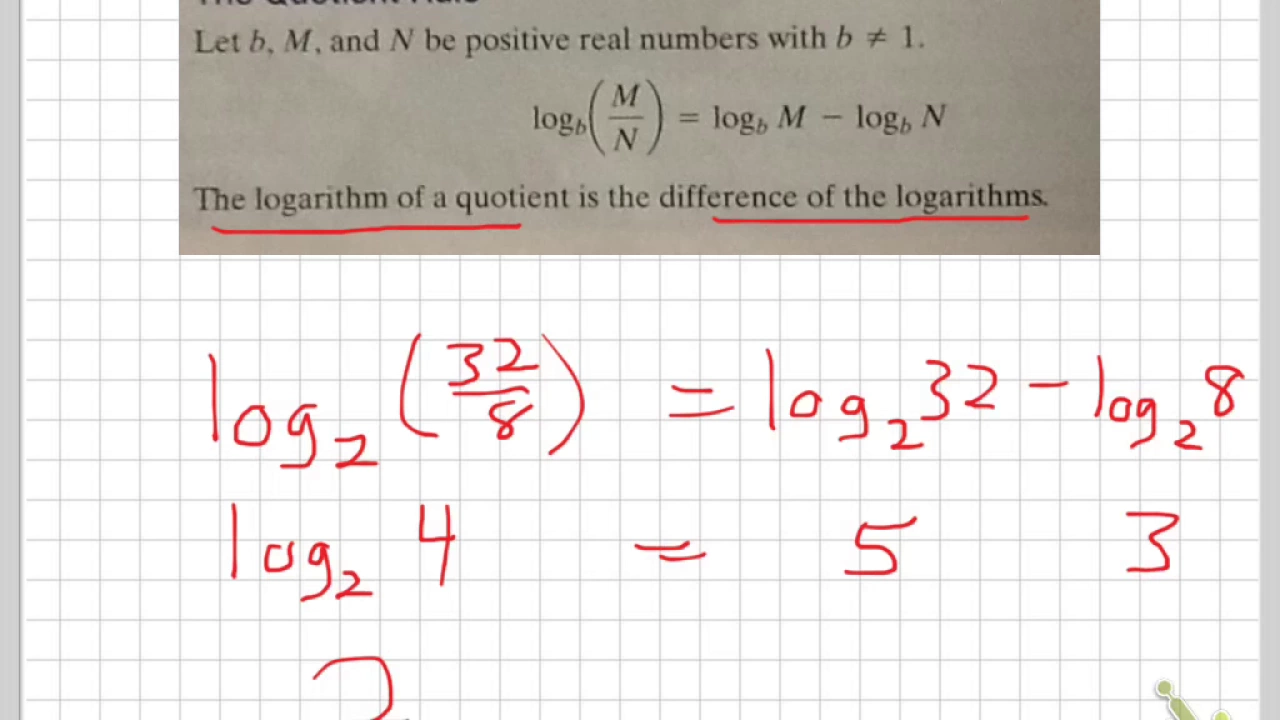 Let b, M, and N be positive real numbers with b ≠ 1.
log_b(M/N) = log_b M − log_b N
The logarithm of a quotient is the difference of the logarithms.
log_2 (32/8) = log_2 32 − log_2 8
log_2 4 = 5 3
2